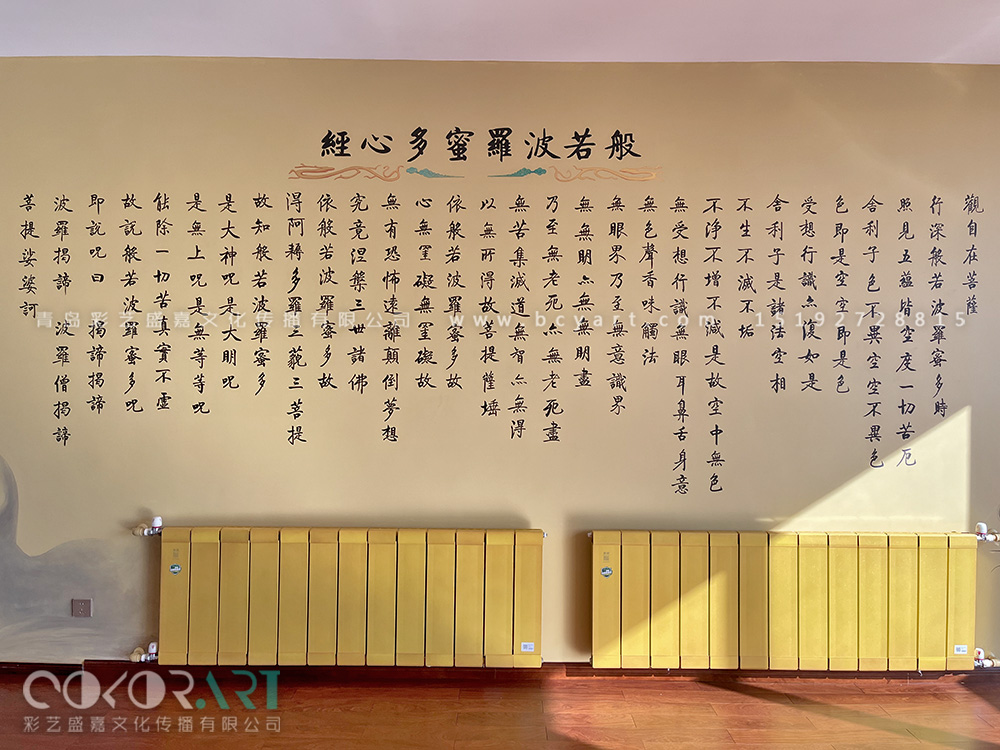 般若波羅蜜多心經
觀自在菩薩
行深般若波羅蜜多時
照見五蘊皆空度一切苦厄
舍利子色不異空空不異色
色即是空空即是色
受想行識亦復如是
舍利子是諸法空相
不生不滅不垢
不淨不增不減是故空中無色
無受想行識無眼耳鼻舌身意
無色聲香味觸法
無眼界乃至無意識界
無無明亦無無明盡
乃至無老死亦無老死盡
無苦集滅道無智亦無得
以無所得故菩提薩埵
依般若波羅蜜多故
心無罣礙無罣礙故
無有恐怖遠離顛倒夢想
究竟涅槃三世諸佛
依般若波羅蜜多故
得阿耨多羅三藐三菩提
故知般若波羅蜜多
是大神呪是大明呪
是無上呪是無等等呪
能除一切苦真實不虛
故説般若波羅蜜多呪
即説呪曰 揭諦揭諦
波羅揭諦 波羅僧揭諦
菩提娑婆訶
青岛彩艺盛嘉文化传播有限公司 www.bcyart.com 15192728815
COLORART
彩艺盛嘉文化传播有限公司